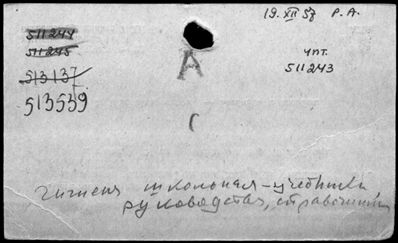 19.XII 57 Р.А.
511244
511245
513137
513539
А
чпт.
511243
С
гигиена школьная - учебники
руководства, справочники